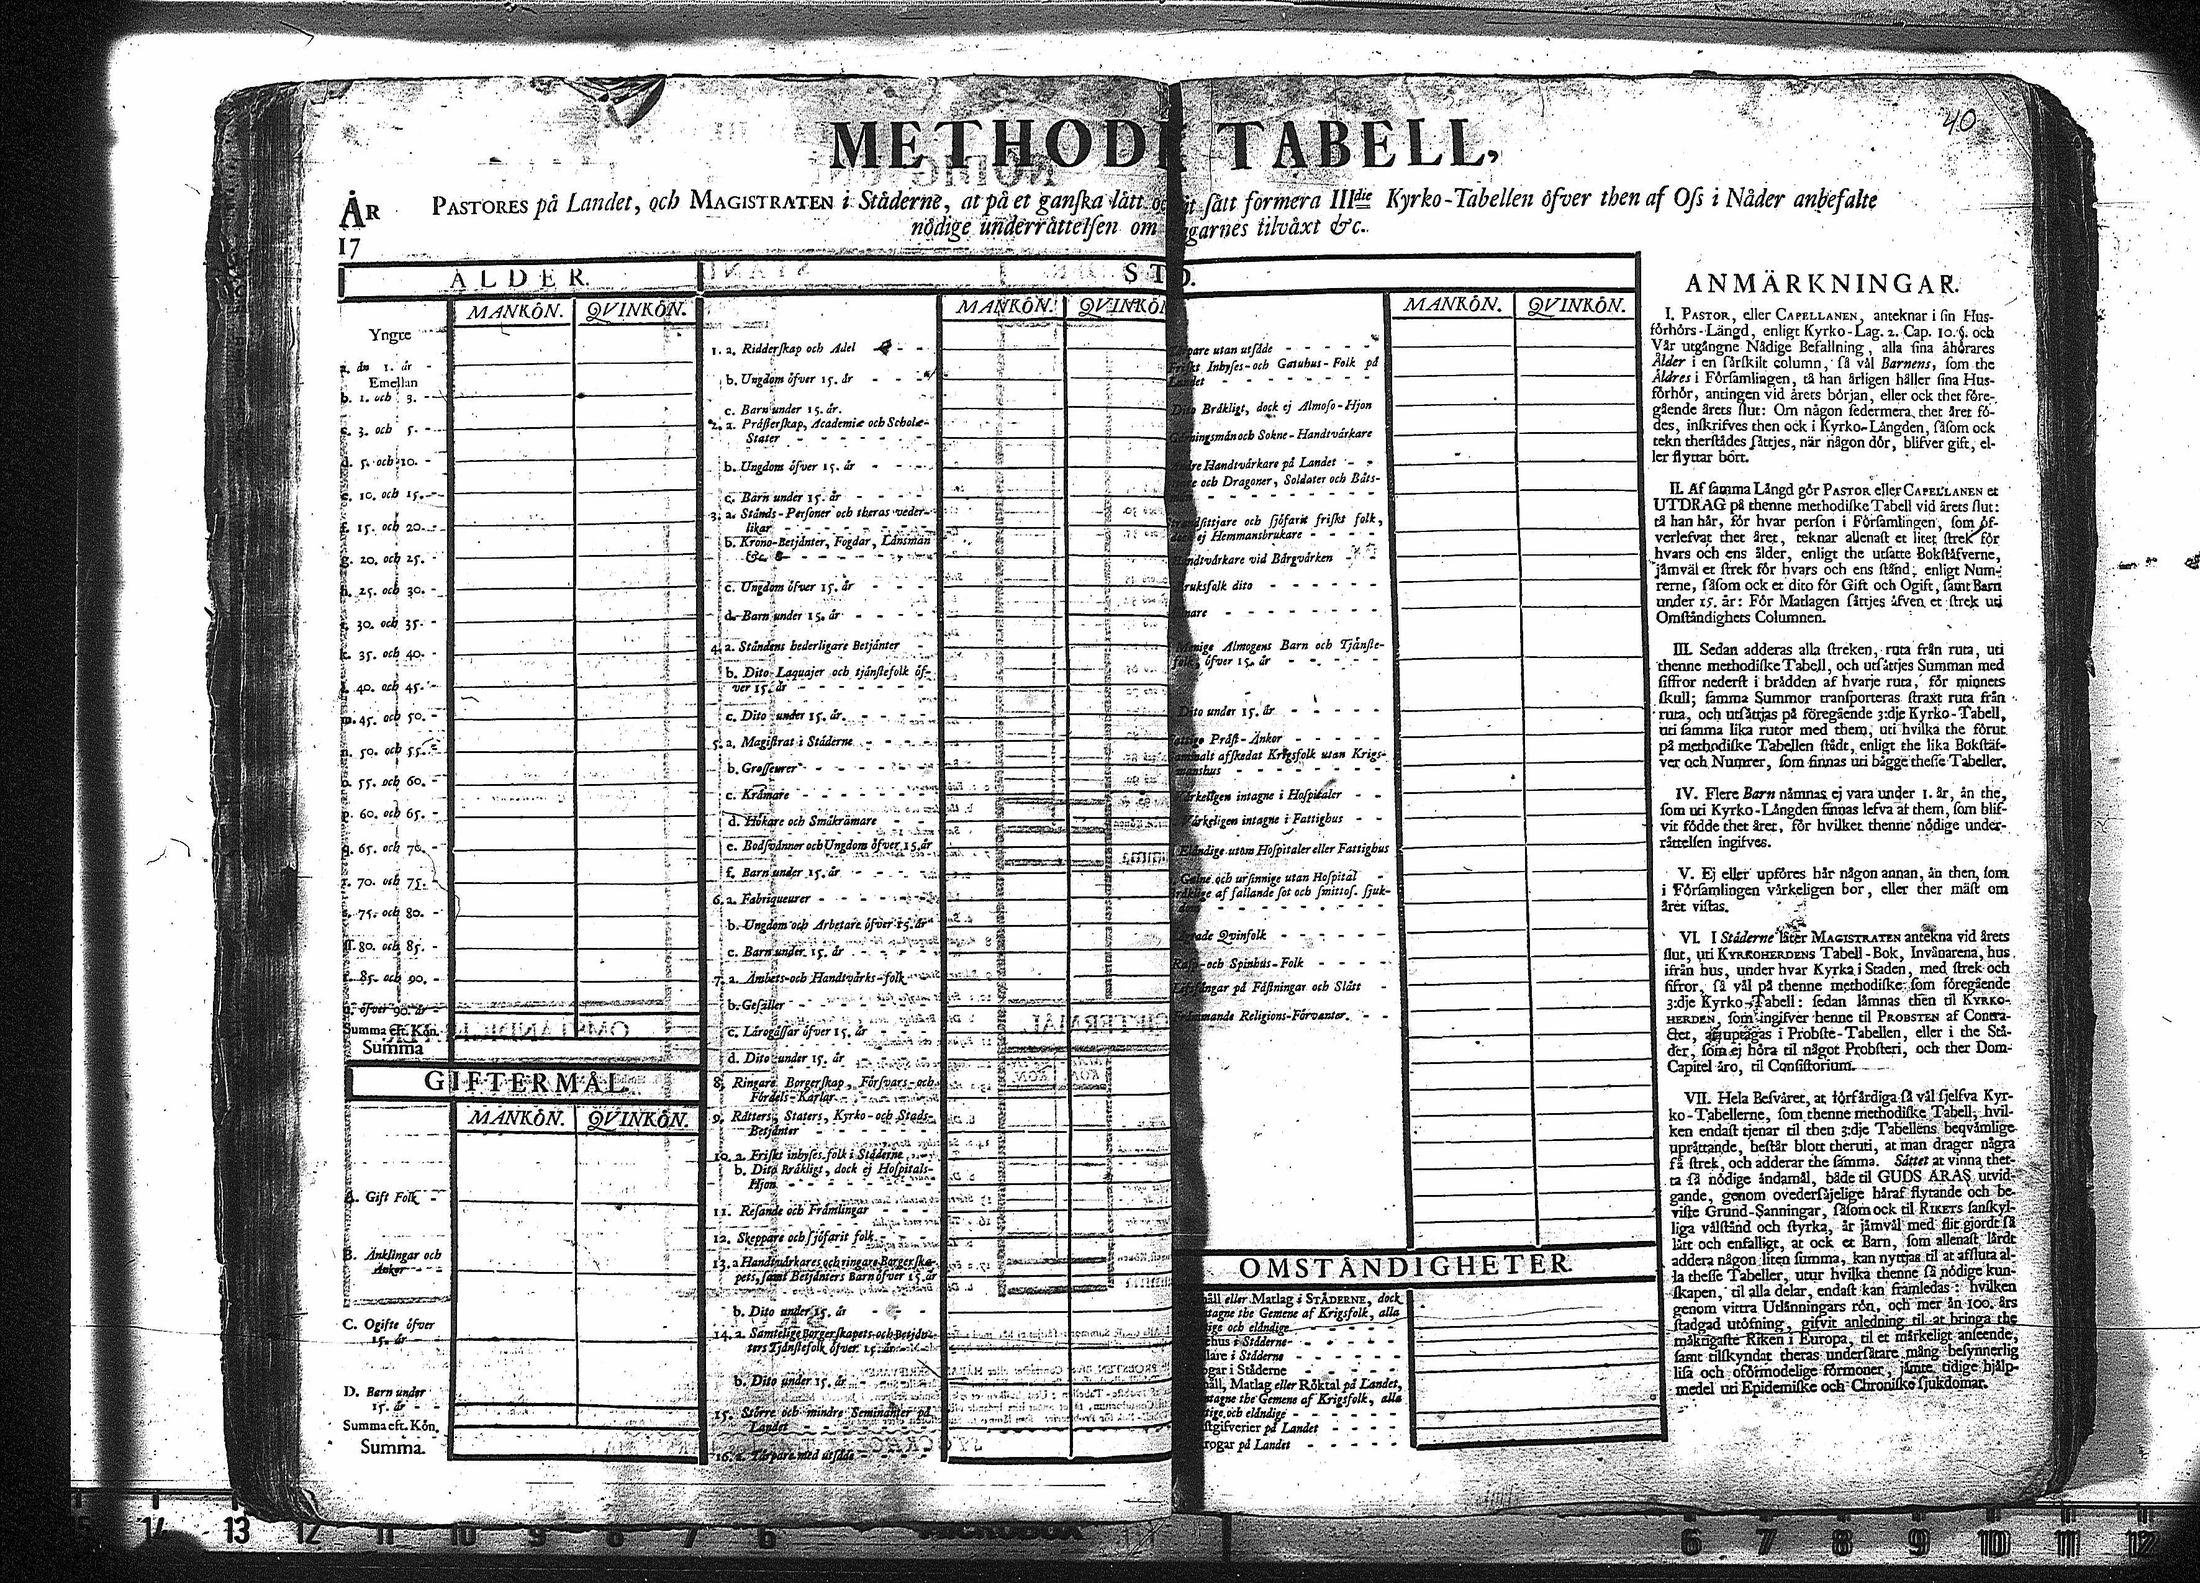 40
METHODI TABELL,
ÅR
17
PASTORES på Landet, och MAGISTRATEN i Städerne, at på et ganſka lätt oc ſätt formera III die Kyrko-Tabellen öfver then af Oſs i Nåder anbefalte
nödige underrättelſen om garnes tilväxt &c.
ÅLDER.
MANKÖN. QVINKÖN.
Yngre
än 1. år -
Emellan
b. 1. och 3. -
c. 3. och 5. -
d. 5. och 10. -
e. 10. och 15. -
f. 15. och 20. -
g. 20. och 25. -
h. 25. och 30. -
30. och 35. -
k. 35. och 40. -
l. 40. och 45. -
m. 45. och 50. -
n. 50. och 55. -
55. och 60. -
p. 60. och 65. -
q. 65. och 70. -
r. 70. och 75. -
s. 75. och 80. -
ſſ. 80. och 85. -
t. 85. och 90. -
u. öfver 90. år -
Summa eft. Kön.
Summa
GIFTERMÅL.
MANKÖN. QVINKÖN.
A. Gift Folk -
B. Änklingar och
Änkor
C. Ogifte öfver
15. år
D. Barn under
15. år -
Summa eft. Kön.
Summa.
STD.
MANKÖN. QVINKÖN
1. a. Ridderſkap och Adel - -
b. Ungdom öfver 15. år - - -
c. Barn under 15. år.
2. a. Präſterſkap, Academiæ och Scholæ-
Stater - - - - - -
b. Ungdom öfver 15. år - - -
c. Barn under 15. år - - - -
3. a. Stånds-Perſoner och theras veder-
likar - - - - - -
b. Krono-Betjänter, Fogdar, Länsmän
&c. - - - - - -
c. Ungdom öfver 15. år - - -
d. Barn under 15. år - - - -
4. a. Ståndens hederligare Betjänter -
b. Dito Laquajer och tjänſtefolk öf-
ver 15. år - - - - -
c. Dito under 15. år. - - - -
5. a. Magiſtrat i Städerne - - -
b. Groſſeurer - - - - - -
c. Krämare - - - - - -
d. Hökare och Småkrämare - -
e. Bodſvänner och Ungdom öfver 15. år
f. Barn under 15. år - - - -
6. a. Fabriqueurer - - - - -
b. Ungdom och Arbetare öfver 15. år
c. Barn under 15. år - - - -
7. a. Ämbets-och Handtvärks-folk -
b. Geſäller - - - - - -
c. Lärogåſſar öfver 15. år - - -
d. Dito under 15. år - - - -
8. Ringare Borgerſkap, Förſvars-och
Fördels-Karlar - - - -
9. Rätters, Staters, Kyrko-och Stads-
Betjänter - - - - - -
10. a. Friſkt inhyſes folk i Städerne - -
b. Dito Bräkligt, dock ej Hoſpitals-
Hjon - - - - - -
11. Reſande och Främlingar - - -
12. Skeppare och ſjöfarit folk - - -
13. a Handtvärkares och ringare Borgerſka-
pets, ſamt Betjänters Barn öfver 15. år
b. Dito under 15. år - - -
14. a. Samtelige Borgerſkapets och Betjän-
ters Tjänſtefolk öfver 15. år - - -
b. Dito under 15. år - - - -
15. Större och mindre Seminanter på
Landet - - - - - -
16. a. Tarpare med utſäde - - -
MANKÖN. QVINKÖN.
pare utan utſäde - - - - -
Friſkt Inhyſes-och Gatuhus-Folk på
Landet - - - - - -
Dito Bräkligt, dock ej Almoſo-Hjon
Gärningsmän och Sokne-Handtvärkare
Handtvärkare på Landet - -
och Dragoner, Soldater och Båts-
- - - - - -
ſittjare och ſjöfarit friſkt folk,
dock ej Hemmansbrukare - - -
Handtvärkare vid Bärgvärken - -
ruksfolk dito - - - - -
- - - - - -
Menige Almogens Barn och Tjänſte-
folk, öfver 15. år - - - -
Dito under 15. år - - - -
Präſt-Änkor - - - - -
afſkedat Krigsfolk utan Krigs-
manshus - - - - - -
Värkeligen intagne i Hoſpitaler - -
Värkeligen intagne i Fattighus - -
Eländige utom Hoſpitaler eller Fattighus
Galne och urſinnige utan Hoſpital -
af fallande ſot och ſmittoſ. ſjuk-
- - - - - -
Qvinfolk - - - - -
och Spinhus-Folk - - - -
Lifsfångar på Fäſtningar och Slått -
Främmande Religions-Förvanter. - -
OMSTÄNDIGHETER.
åll eller Matlag i STÄDERNE, dock
tagne the Gemene af Krigsfolk, alla
och eländige - - - - -
hus i Städerne - - - -
lare i Städerne - - - -
ogar i Städerne - - - -
åll, Matlag eller Röktal på Landet,
tagne the Gemene af Krigsfolk, alla
och eländige - - - - -
ſtgifverier på Landet - - - -
rogar på Landet - - - - -
ANMÄRKNINGAR.
I. PASTOR, eller CAPELLANEN, anteknar i ſin Hus-
förhörs-Längd, enligt Kyrko-Lag. 2. Cap. 10. §. och
Vår utgångne Nådige Befallning, alla ſina åhörares
Ålder i en ſärſkilt column, ſå väl Barnens, ſom the
Äldres i Förſamlingen, tå han årligen håller ſina Hus-
förhör, antingen vid årets början, eller ock thet före-
gående årets ſlut: Om någon ſedermera thet året fö-
des, inſkrifves then ock i Kyrko-Längden, ſåſom ock
tekn therſtädes ſättjes, när någon dör, blifver gift, el-
ler flyttar bort.
II. Af ſamma Längd gör PASTOR eller CAPELLANEN et
UTDRAG på thenne methodiſke Tabell vid årets ſlut:
tå han här, för hvar perſon i Förſamlingen, ſom öf-
verlefvat thet året, teknar allenaſt et litet ſtrek för
hvars och ens ålder, enligt the utſatte Bokſtäfverne,
jämväl et ſtrek för hvars och ens ſtånd, enligt Num-
rerne, ſåſom ock et dito för Gift och Ogift, ſamt Barn
under 15. år: För Matlagen ſättjes äfven et ſtrek uti
Omſtändighets Columnen.
III. Sedan adderas alla ſtreken, ruta från ruta, uti
thenne methodiſke Tabell, och utſättjes Summan med
ſiffror nederſt i brädden af hvarje ruta, för minnets
ſkull; ſamma Summor tranſporteras ſtraxt ruta från
ruta, och utſättjas på föregående 3:dje Kyrko-Tabell,
uti ſamma lika rutor med them, uti hvilka the förut
på methodiſke Tabellen ſtådt, enligt the lika Bokſtäf-
ver och Numrer, ſom finnas uti bägge theſſe Tabeller.
IV. Flere Barn nämnas ej vara under 1. år, än the,
ſom uti Kyrko-Längden finnas lefva af them, ſom blif-
vit födde thet året, för hvilket thenne nödige under-
rättelſen ingifves.
V. Ej eller upföres här någon annan, än then, ſom
i Förſamlingen värkeligen bor, eller ther mäſt om
året viſtas.
VI. I Städerne låter MAGISTRATEN antekna vid årets
ſlut, uti KYRKOHERDENS Tabell-Bok, Invånarena, hus
ifrån hus, under hvar Kyrka i Staden, med ſtrek och
ſiffror, ſå väl på thenne methodiſke ſom föregående
3:dje Kyrko-Tabell: ſedan lämnas then til KYRKO-
HERDEN, ſom ingifver henne til PROBSTEN af Contra-
ctet, at uptagas i Probſte-Tabellen, eller i the Stä-
der, ſom ej höra til något Probſteri, och ther Dom-
Capitel äro, til Conſiſtorium.
VII. Hela Beſväret, at förfärdiga ſå väl ſjelfva Kyr-
ko-Tabellerne, ſom thenne methodiſke Tabell, hvil-
ken endaſt tjenar til then 3:dje Tabellens beqvämlige
uprättande, beſtår blott theruti, at man drager några
få ſtrek, och adderar the ſamma. Sättet at vinna thet-
ta ſå nödige ändamål, både til GUDS ÄRAS utvid-
gande, genom ovederſäjelige häraf flytande och be-
viſte Grund-Sanningar, ſåſom ock til RIKETS ſanſkyl-
liga välſtånd och ſtyrka, är jämväl med flit gjordt ſå
lätt och enfalligt, at ock et Barn, ſom allenaſt lärdt
addera någon liten ſumma, kan nyttjas til at affluta al-
la theſſe Tabeller, utur hvilka thenne ſå nödige kun-
ſkapen, til alla delar, endaſt kan främledas: hvilken
genom vittra Utlänningars rön, och mer än 100. års
ſtadgad utöfning, gifvit anledning til at bringa the
mäktigaſte Riken i Europa, til et märkeligt anſeende,
ſamt tilſkyndat theras underſåtare mång beſynnerlig
liſa och oförmodelige förmoner, jämte tidige hjälp-
medel uti Epidemiſke och Chroniſke ſjukdomar.
14 13 12 11 10 9 8 7 6
6 7 8 9 10 11 12